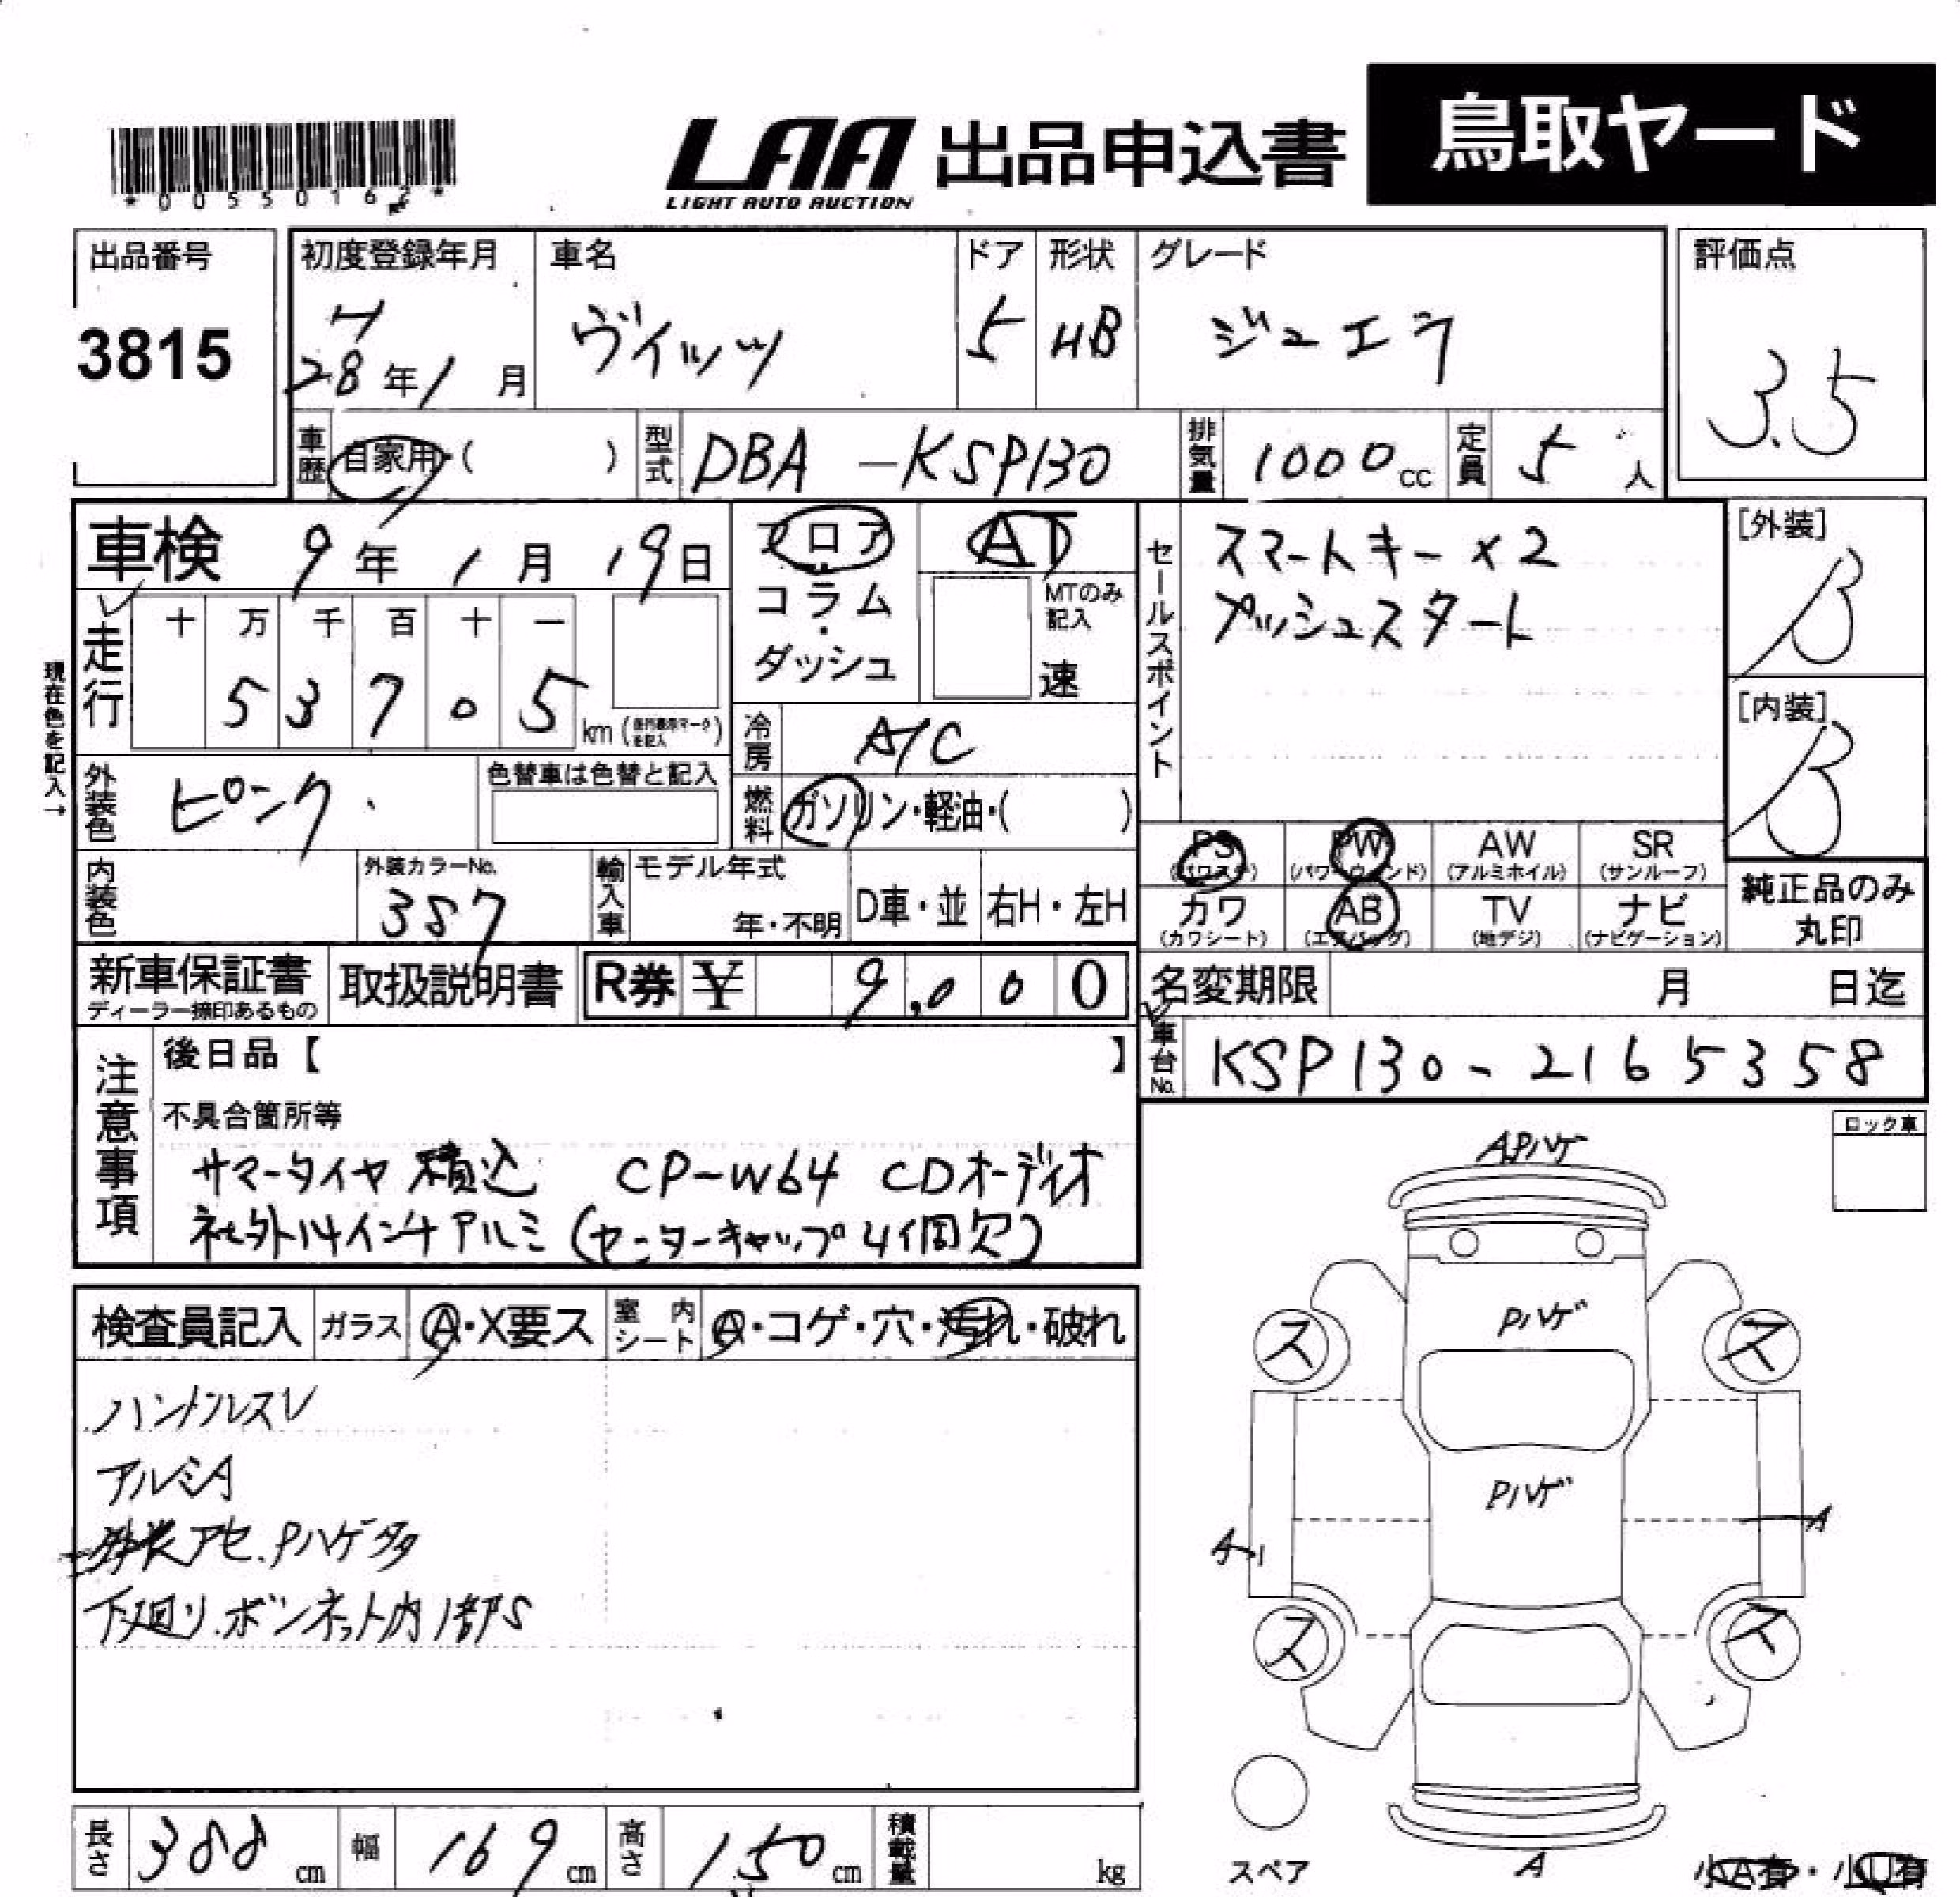 鳥取ヤード
LAA 出品申込書
LIGHT AUTO AUCTION
*00550162*
出品番号
3815
初度登録年月
H
28年1月
車名
ヴィッツ
ドア
5
形状
HB
グレード
ジュエラ
評価点
3.5
車歴
自家用・( )
型式
DBA-KSP130
排気量
1000cc
定員
5人
車検
9年1月19日
フロア・
コラム・
ダッシュ
AT
MTのみ記入
速
セールスポイント
スマートキー×2
プッシュスタート
[外装]
B
[内装]
B
現在色を記入→
走行
十 万 千 百 十 一
5 3 7 0 5
km(走行表示マークを記入)
冷房
A/C
外装色
ピンク
色替車は色替と記入
燃料
ガソリン・軽油・( )
PS
(パワステ)
PW
(パワーウィンド)
AW
(アルミホイル)
SR
(サンルーフ)
カワ
(カワシート)
AB
(エアバッグ)
TV
(地デジ)
ナビ
(ナビゲーション)
純正品のみ
丸印
内装色
外装カラーNo.
387
輸入車
モデル年式
年・不明
D車・並
右H・左H
新車保証書
ディーラー捺印あるもの
取扱説明書
R券 ¥ 9,000
名変期限
月 日迄
車台No.
KSP130-2165358
注意事項
後日品【 】
不具合箇所等
サマータイヤ積込 CP-W64 CDオーディオ
社外14インチアルミ(センターキャップ4個欠)
ロック車
検査員記入
ガラス
A・X要ス
室内シート
A・コゲ・穴・汚れ・破れ
ハンドルスレ
アルミA
外装アセ.Pハゲ多
下廻リ.ボンネット内1部S
APハゲ
Pハゲ
ス
ス
Pハゲ
A
ス
ス
A
スペア
小A有・小U有
長さ
388cm
幅
169cm
高さ
150cm
積載量
kg